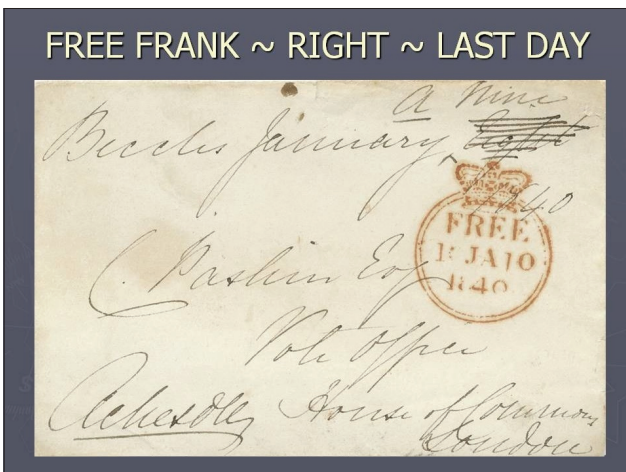 FREE FRANK ~ RIGHT ~ LAST DAY
a Nine
Beccles January, Eight
1840
FREE
JA 10
1840
C. Paskin Esq
Vote Office
House of Commons
London